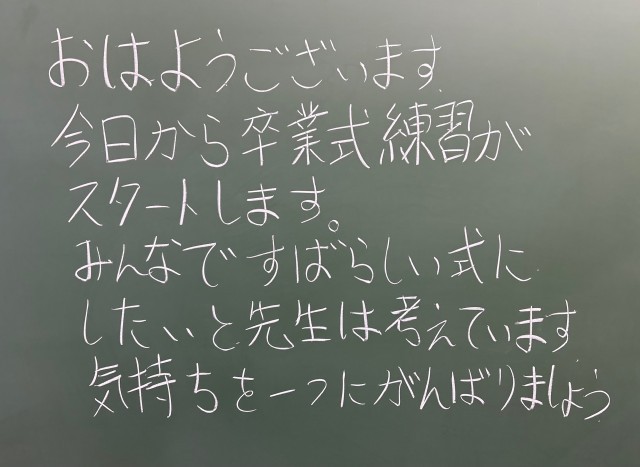 おはようございます
今日から卒業式練習が
スタートします。
みんなですばらしい式に
したいと先生は考えています
気持ちを一つにがんばりましょう